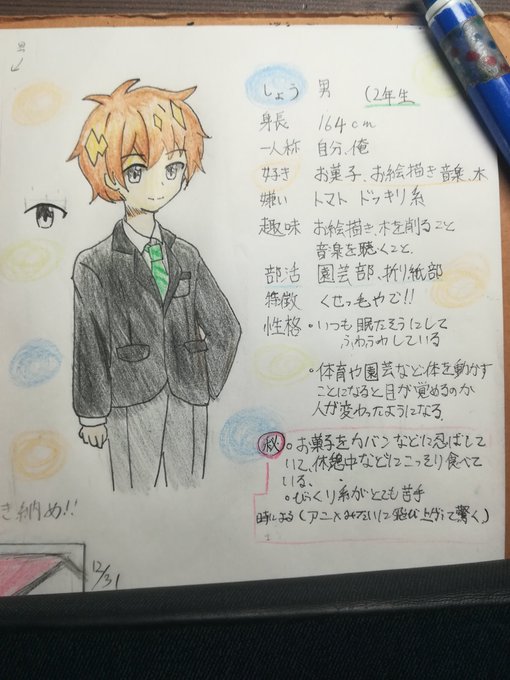 男
しょう 男 (2年生
身長 164cm
一人称 自分、俺
好き お菓子、お絵描き音楽、木
嫌い トマト ドッキリ系
趣味 お絵描き、木を削ること
音楽を聴くこと、
部活 園芸部、折り紙部
特徴 くせっ毛やで!!
性格・いつも眠たそうにして
ふわふわしている
・体育や園芸など体を動かす
ことになると目が覚めるのか
人が変わったようになる
秘 お菓子をカバンなどに忍ばして
いて、休憩中などにこっそり食べて
いる、
びっくり系がとても苦手
時による(アニメみたいに飛び上がって驚く)
き納め!!
12/31